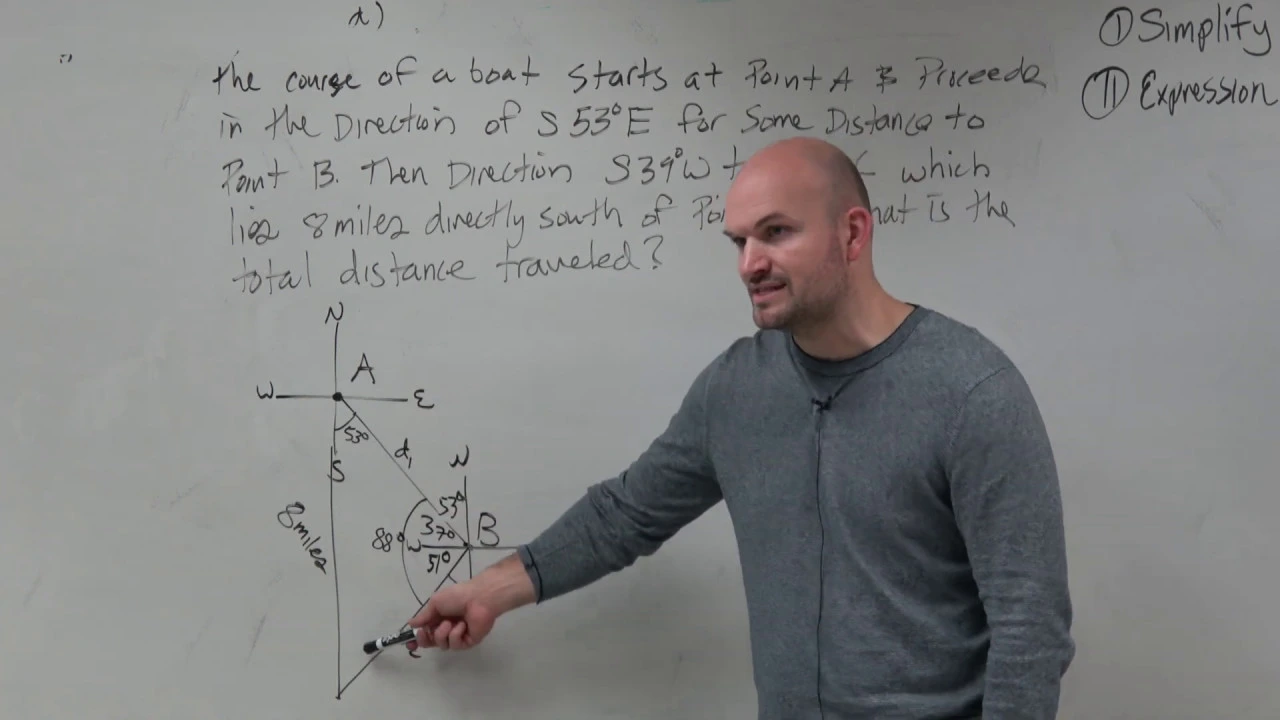 ① Simplify
② Expression
The course of a boat starts at Point A & Proceeds
in the Direction of S 53° E for Some Distance to
Point B. Then Direction S39°W which
lies 8 miles directly south of is the
total distance traveled?
N
A
W E
53°
S
d₁
N
8 miles
53°
37°
B
88°
W
51°